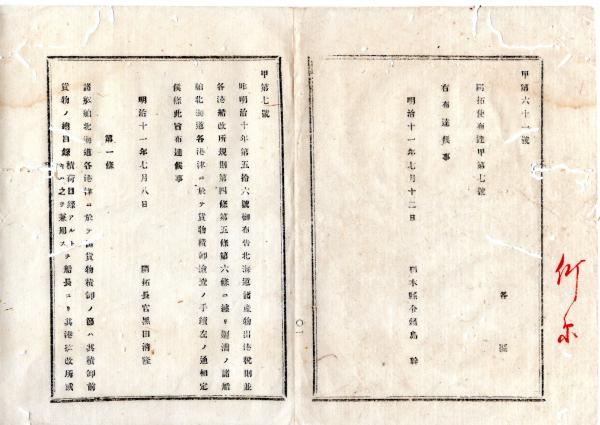 甲第六十一號
開拓使布達甲第七號
右布達候事
明治十一年七月十二日
各區
栃木縣令鍋島幹
甲第七號
昨明治十年第五拾六號御布告北海道諸產物出港稅則並
各港船改所規則第四條第五條第六條ニ據リ
諸船
舶北海道各港津ニ於テ貨物積卸檢査ノ手續左ノ通相定
候條此旨布達候事
明治十一年七月八日
開拓長官黑田淸隆
第一條
諸船舶北海道各港津ニ於テ
貨物積卸ノ節ハ其積卸前
貨物ノ總目錄
積荷目錄アルトキハ之ヲ兼用ス
ヲ船長ヨリ其港船改所或